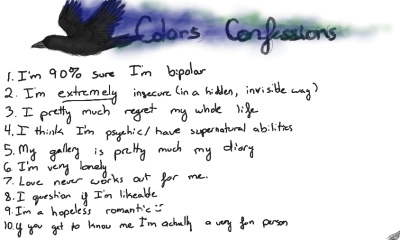 Colors Confessions
1. I'm 90% sure I'm bipolar
2. I'm extremely insecure (in a hidden, invisible way)
3. I pretty much regret my whole life
4. I think I'm psychic/have supernatural abilities
5. My gallery is pretty much my diary
6. I'm very lonely
7. Love never works out for me..
8. I question if I'm likeable
9. I'm a hopeless romantic :)
10. If you get to know me I'm actually a very fun person